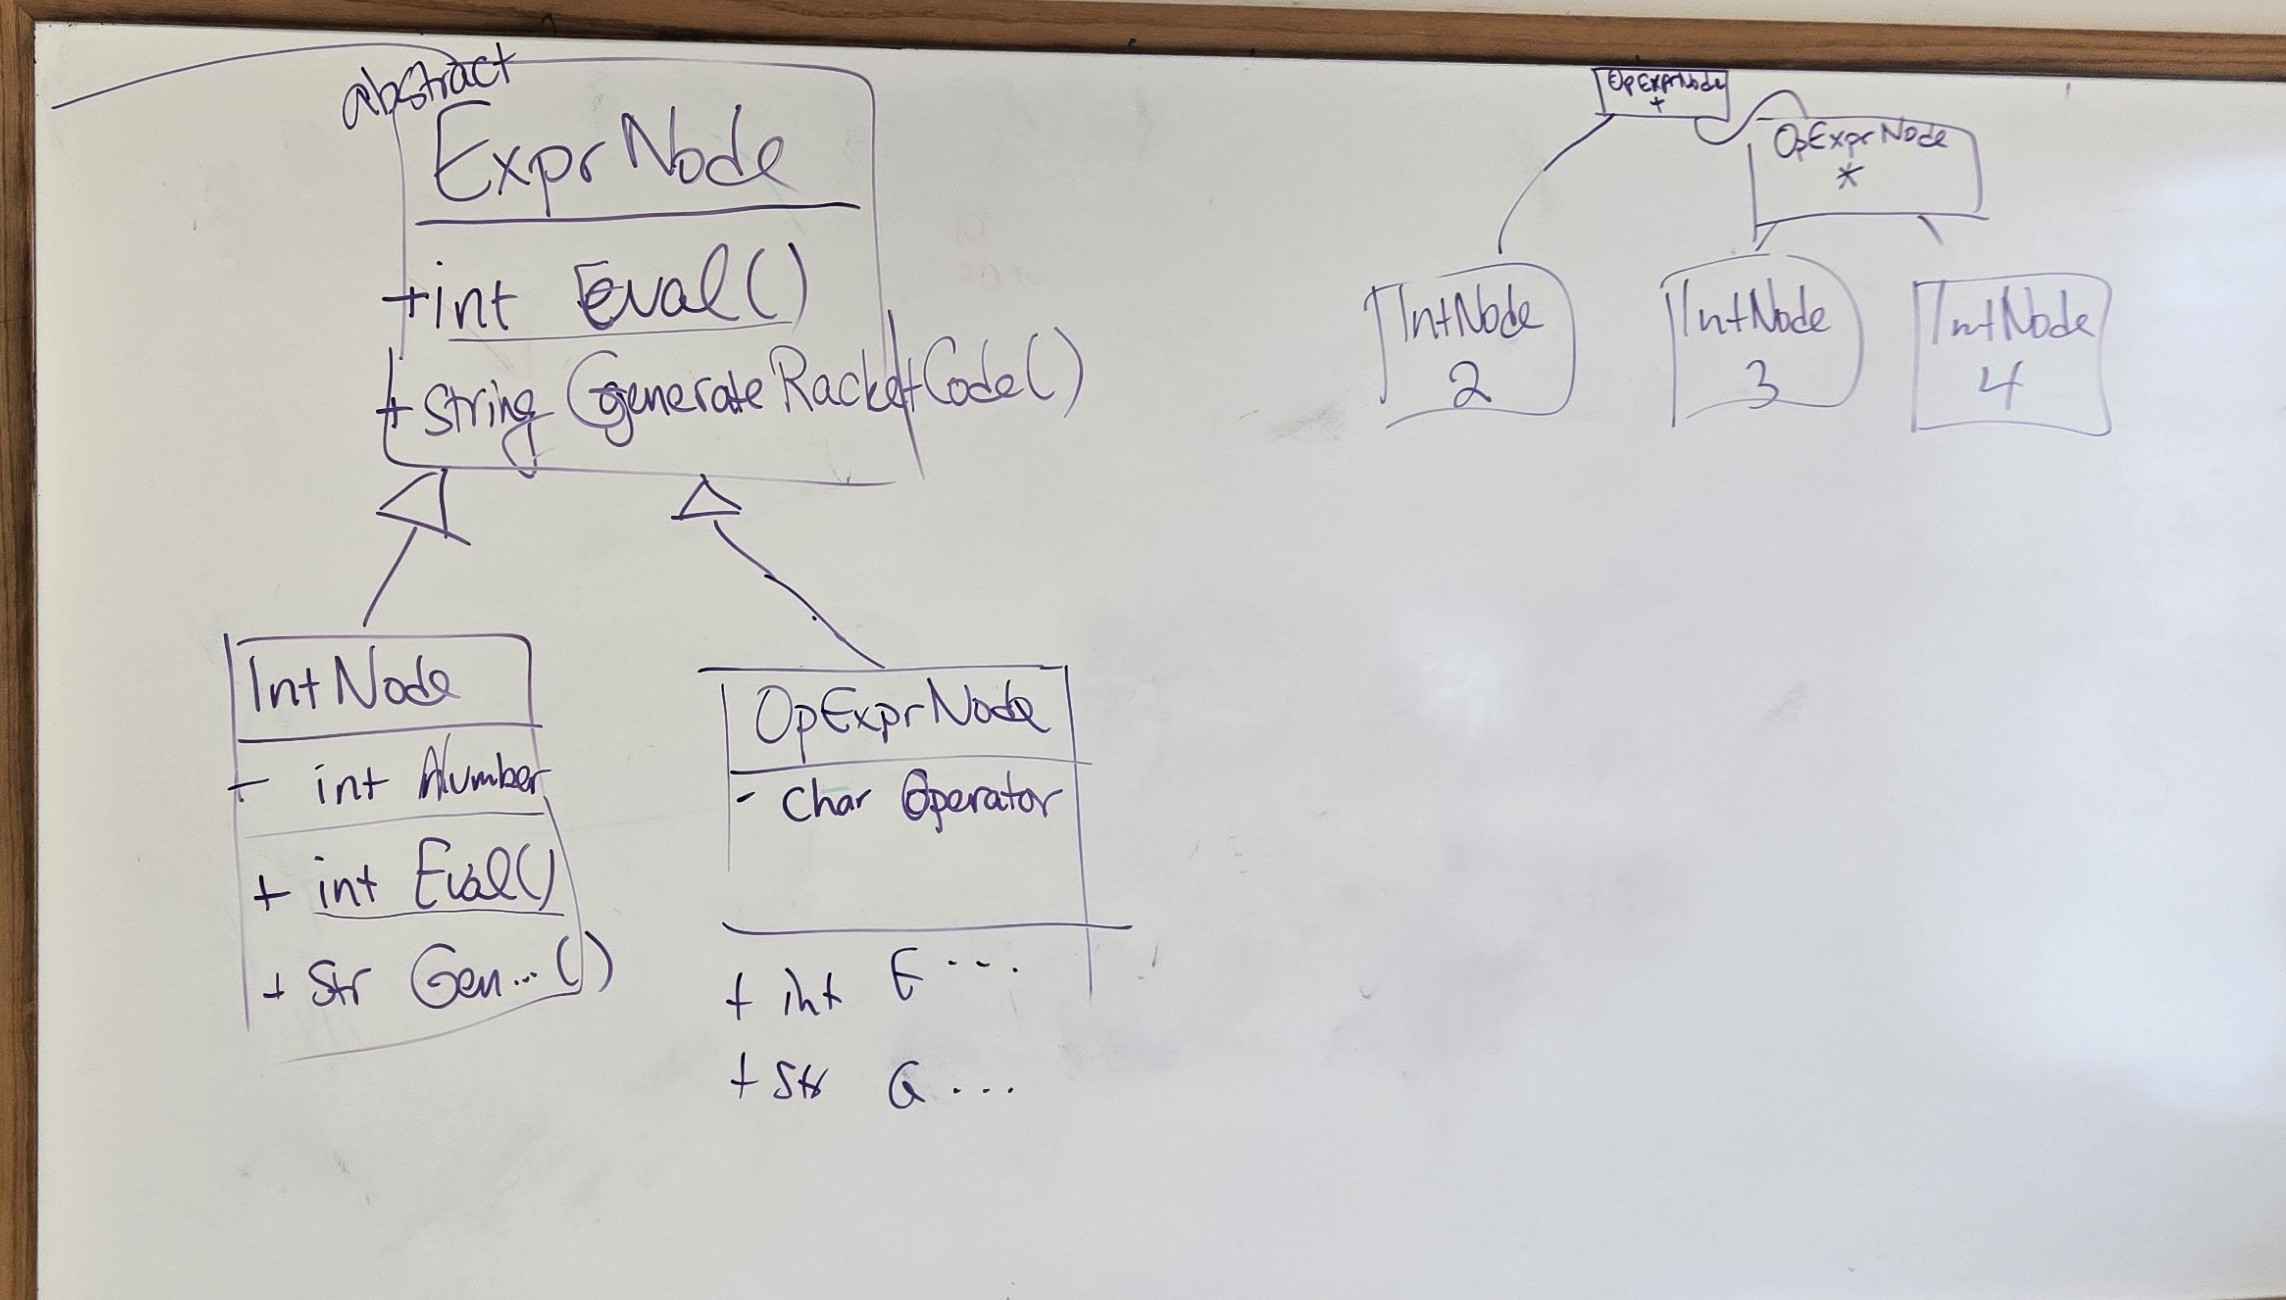 abstract
ExprNode
+int Eval()
+ String GenerateRacketCode()
IntNode
- int Number
+ int Eval()
+ Str Gen...()
OpExprNode
- Char Operator
+ int E....
+ Str G...
OpExprNode
+
OpExprNode
*
IntNode
2
IntNode
3
IntNode
4